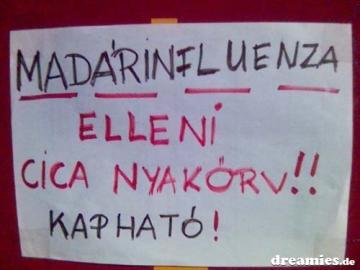 MADÁRINFLUENZA
ELLENI
CICA NYAKÖRV!!
KAPHATÓ!
dreamies.de